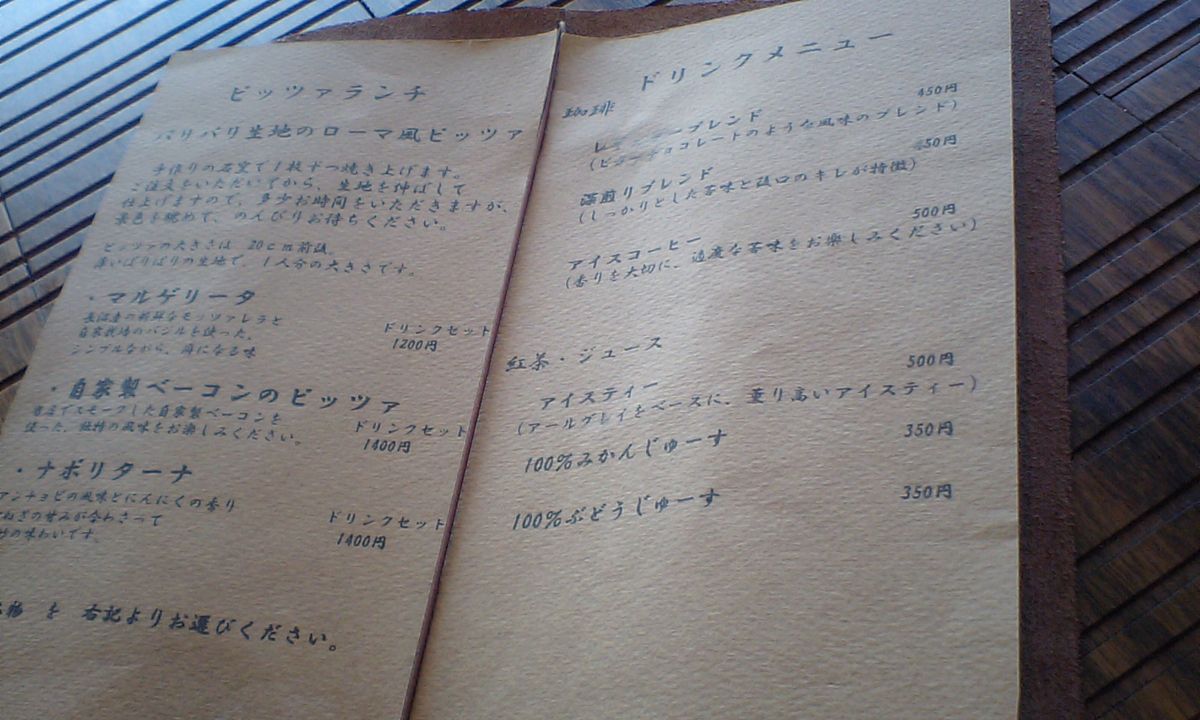 ピッツァランチ
パリパリ生地のローマ風ピッツァ
手作りの石窯で1枚ずつ焼き上げます。
ご注文をいただいてから、生地を伸ばして
仕上げますので、多少お時間をいただきますが、
景色を眺めて、のんびりお待ちください。
ピッツァの大きさは 20cm前後。
薄いぱりぱりの生地で、1人分の大きさです。
・マルゲリータ
の新鮮なモッツァレラと
自家栽培のバジルを使った、
シンプルながら、癖になる味
ドリンクセット
1200円
・自家製ベーコンのピッツァ
でスモークした自家製ベーコンを
使った、独特の風味をお楽しみください。
ドリンクセット
1400円
・ナポリターナ
アンチョビの風味とにんにくの香り
ねぎの甘みが合わさって
の味わいです。
ドリンクセット
1400円
を 右記よりお選びください。
ドリンクメニュー
珈琲
ブレンド 450円
(ビターチョコレートのような風味のブレンド)
深煎りブレンド 450円
(しっかりとした苦味と後口のキレが特徴)
アイスコーヒー 500円
(香りを大切に、適度な苦味をお楽しみください)
紅茶・ジュース
アイスティー 500円
(アールグレイをベースに、薫り高いアイスティー)
100%みかんじゅーす 350円
100%ぶどうじゅーす 350円